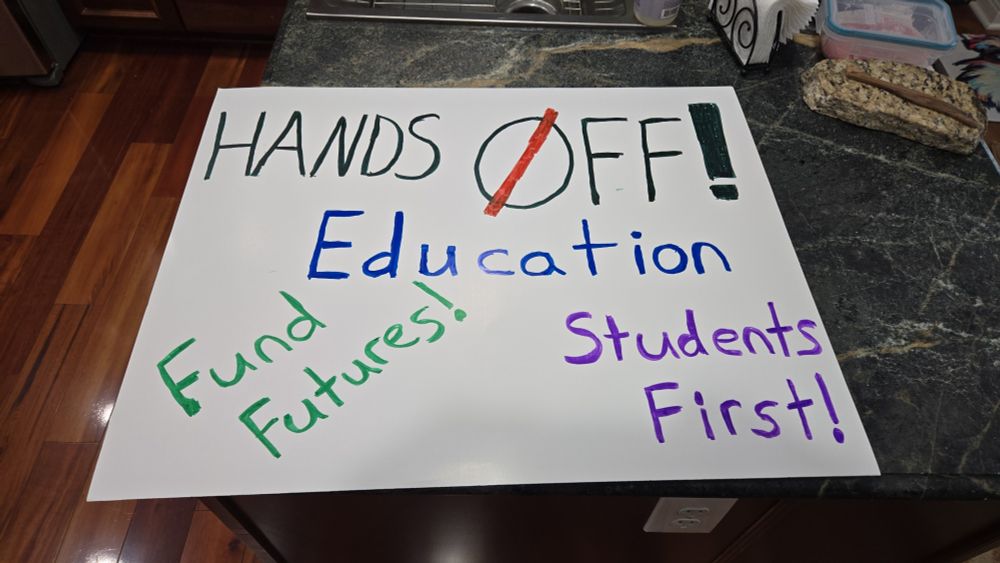 HANDS OFF!
Education
Fund
Futures!
Students
First!